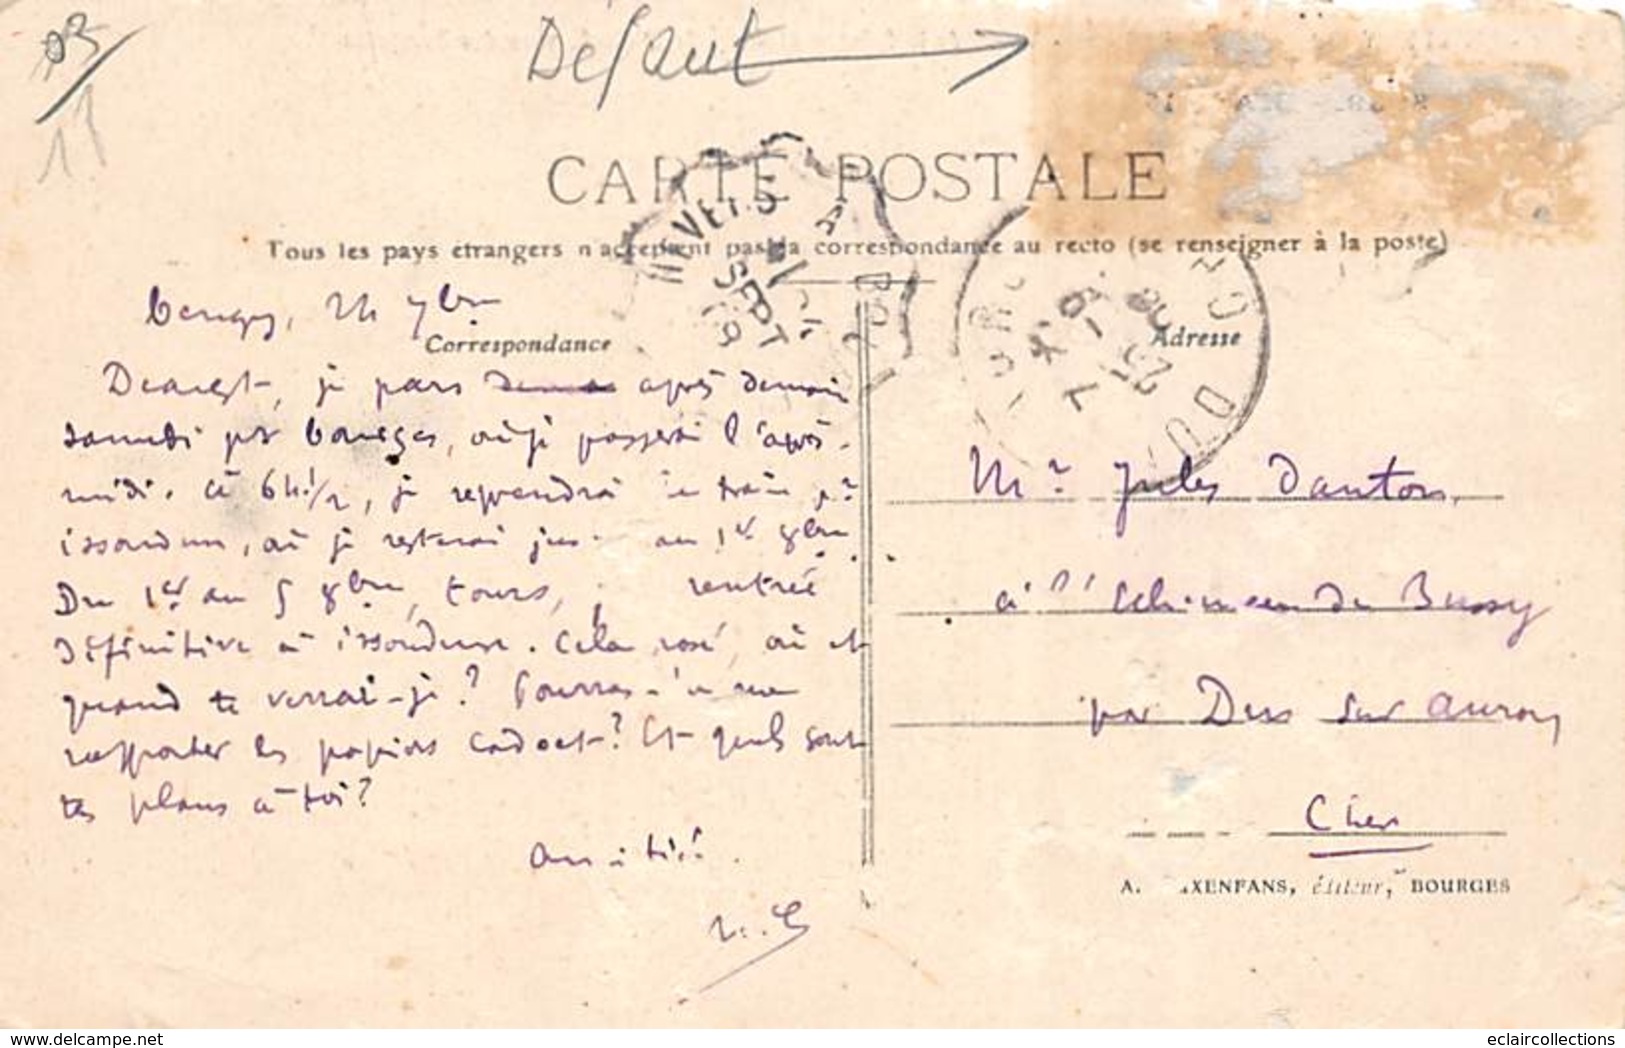 03
Défaut
CARTE POSTALE
Tous les pays étrangers n'acceptent pas la correspondance au recto (se renseigner à la poste)
NEVERS A
SEPT
09
7 25
DUN
Correspondance
Adresse
Bengy, 7bre
Dearest, je pars après demain
samedi pr Bourges, où je passerai l'après-
midi. à 6h1/2, je reprendrai le train pr
issoudun, où je resterai au 1er 8bre
Du 1er au 5 8bre, tours, rentrée
définitive à issoudun. Cela posé, où et
quand te verrai-je? Pourras-tu me
rapporter les papiers Cadoet? Et quels sont
tes plans à toi?
amitié.
Mr Jules Danton
à l' de Bussy
par Dun sur auron
Cher
A. AXENFANS, éditeur, BOURGES
eclaircollections